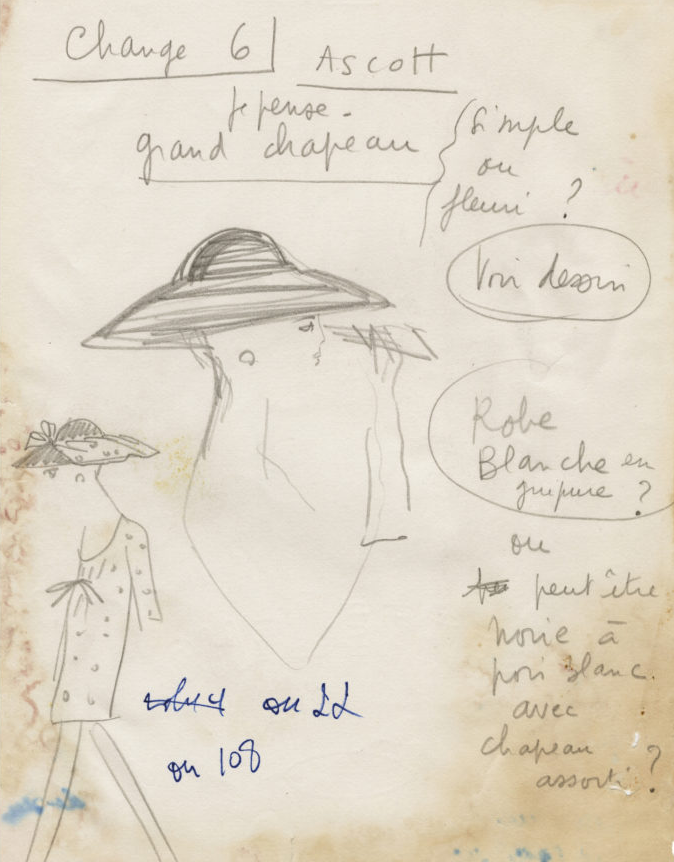 Change 6
Ascott
Je pense -
grand chapeau
Simple
ou
fleuri ?
Voir dessin
Robe
Blanche en
guipure ?
ou
peut être
noire à
pois blanc.
avec
chapeau
assorti ?
ou 22
ou 108